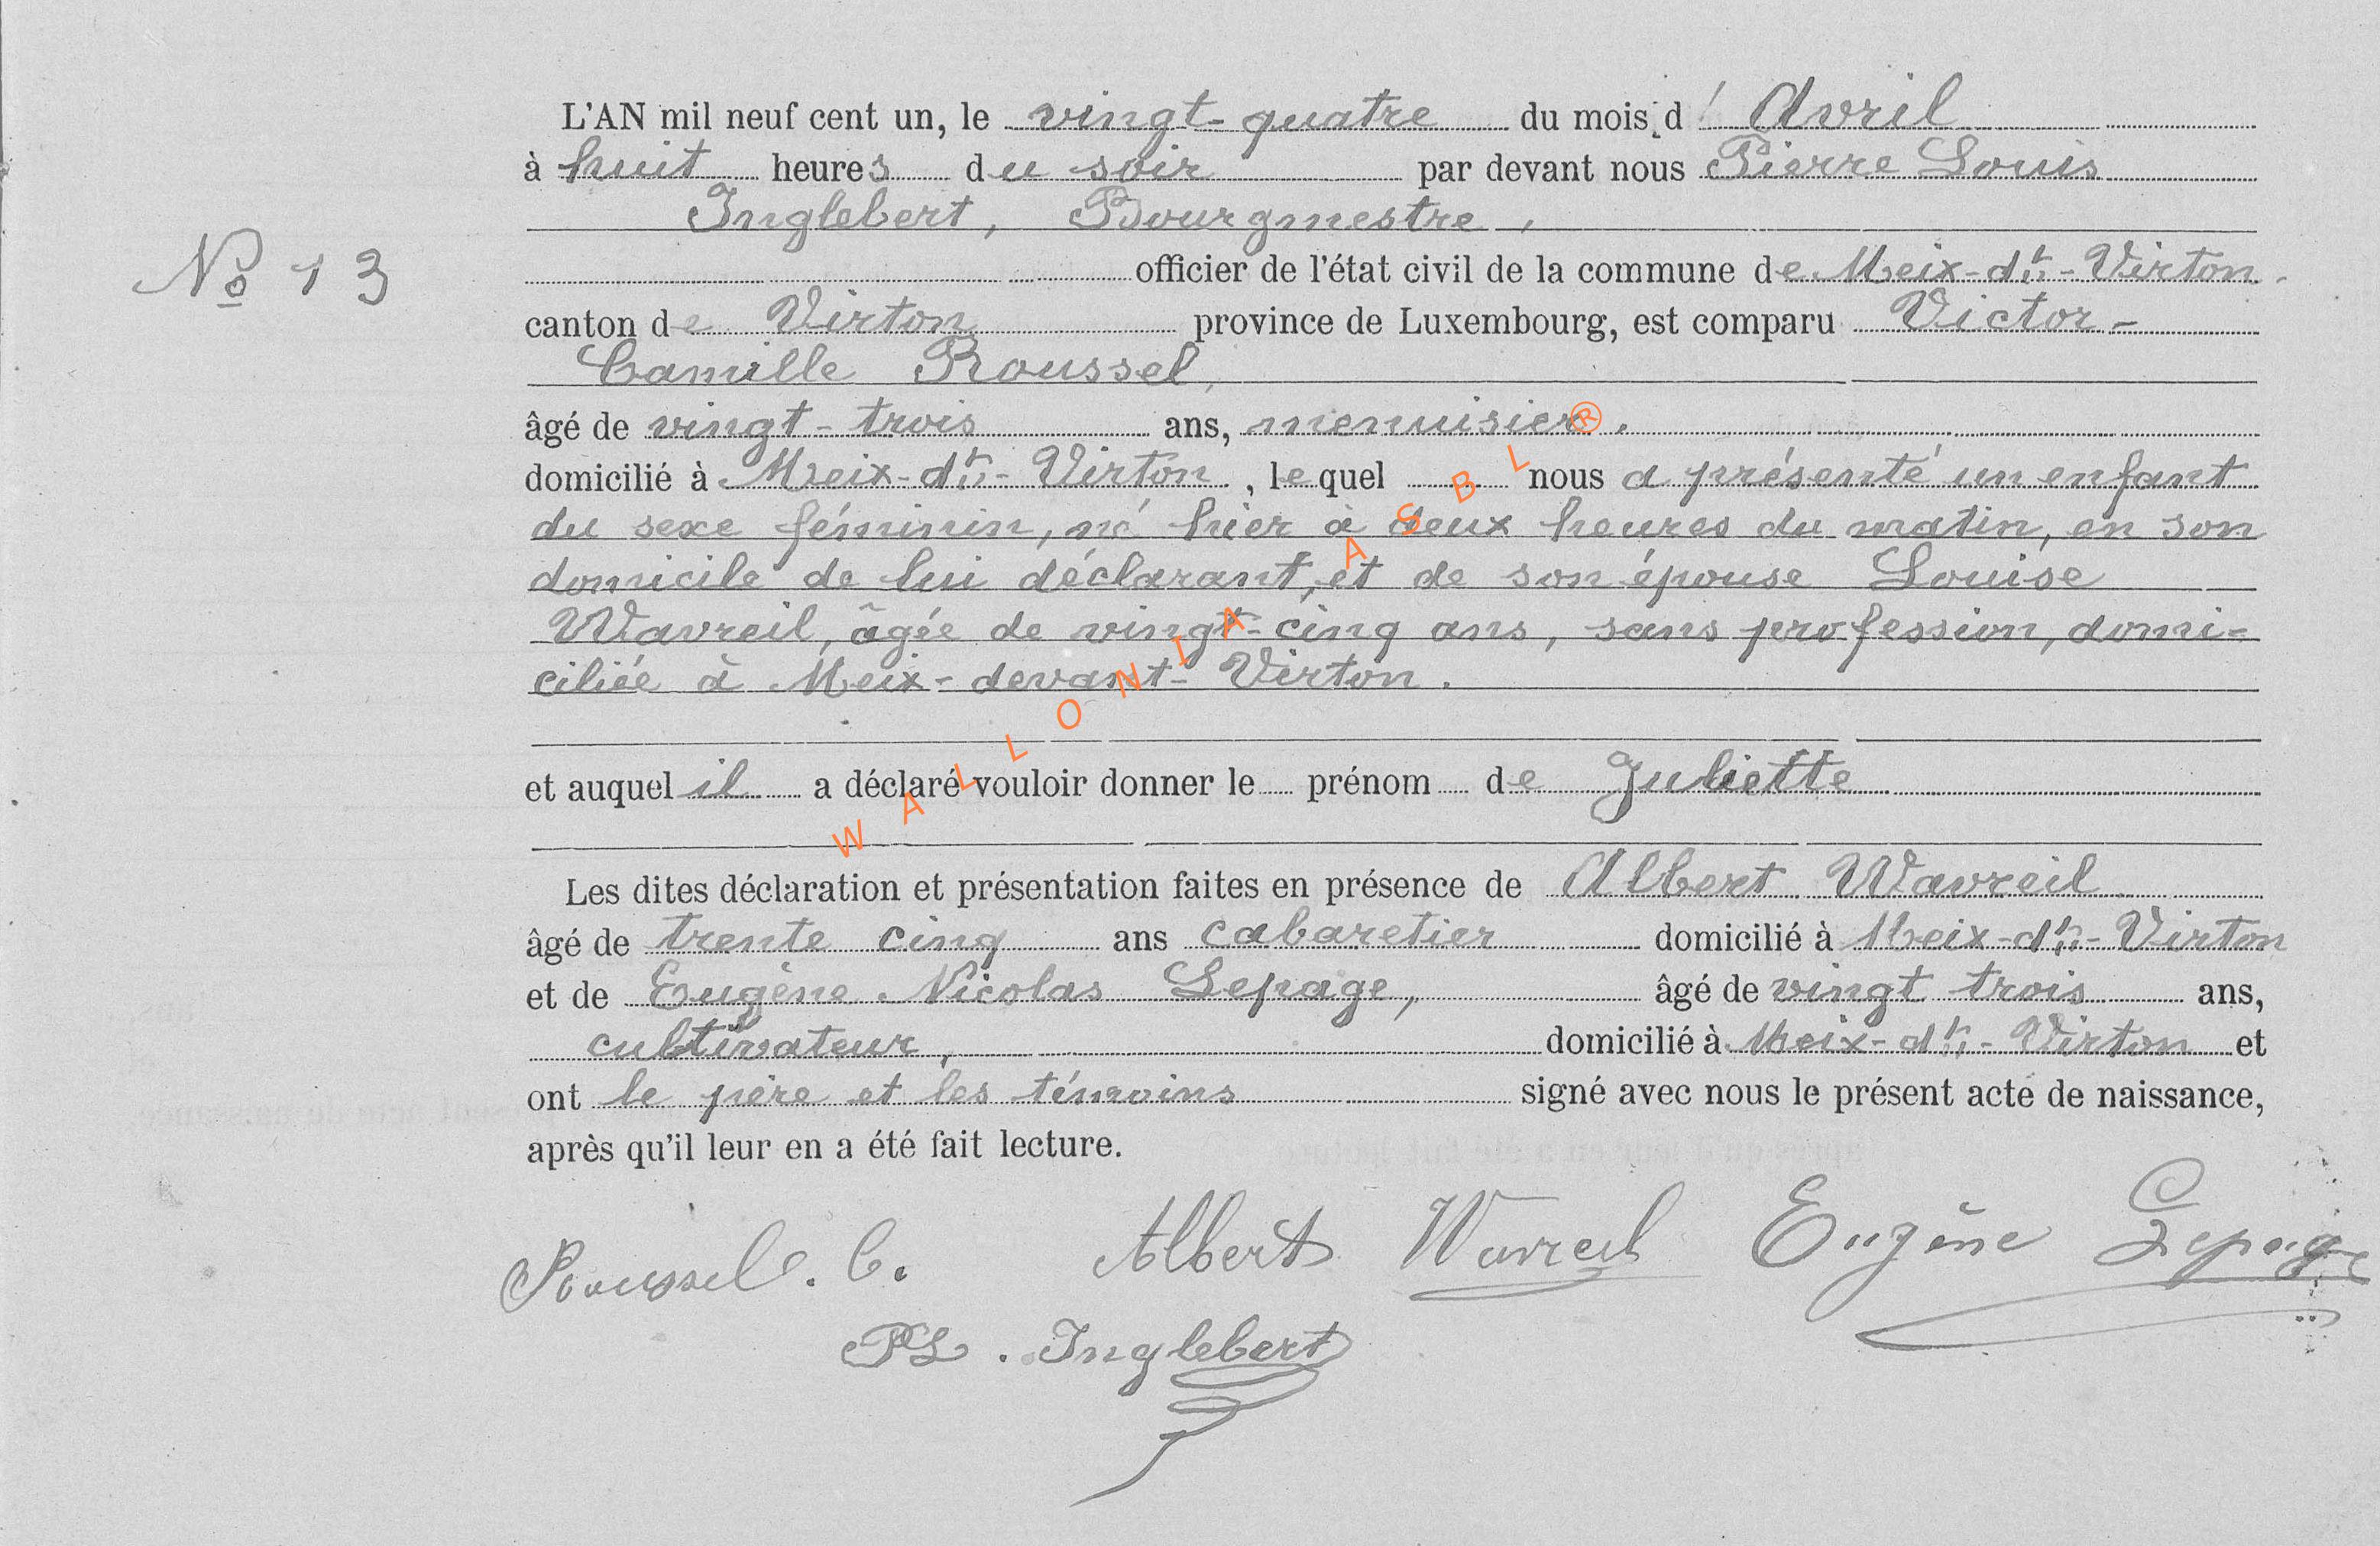 L'AN mil neuf cent un, le vingt-quatre du mois d'Avril
à huit heures du soir par devant nous Pierre Louis
Inglebert, Bourgmestre,
officier de l'état civil de la commune de Meix-dt-Virton.
No 13
canton de Virton province de Luxembourg, est comparu Victor-
Camille Roussel,
âgé de vingt-trois ans, menuisier.
domicilié à Meix-dt-Virton, lequel nous a présenté un enfant
du sexe féminin, né hier à deux heures du matin, en son
domicile de lui déclarant, et de son épouse Louise
Wavreil, âgée de vingt-cinq ans, sans profession, domi-
ciliée à Meix-devant-Virton.
et auquel il a déclaré vouloir donner le prénom de Juliette
Les dites déclaration et présentation faites en présence de Albert Wavreil
âgé de trente cinq ans cabaretier domicilié à Meix-dt-Virton
et de Eugène Nicolas Lepage, âgé de vingt trois ans,
cultivateur, domicilié à Meix-dt-Virton et
ont le père et les témoins signé avec nous le présent acte de naissance,
après qu'il leur en a été fait lecture.
Roussel. C. Albert Wavreil Eugène Lepage
PL. Inglebert
WALLONIA ASBL®